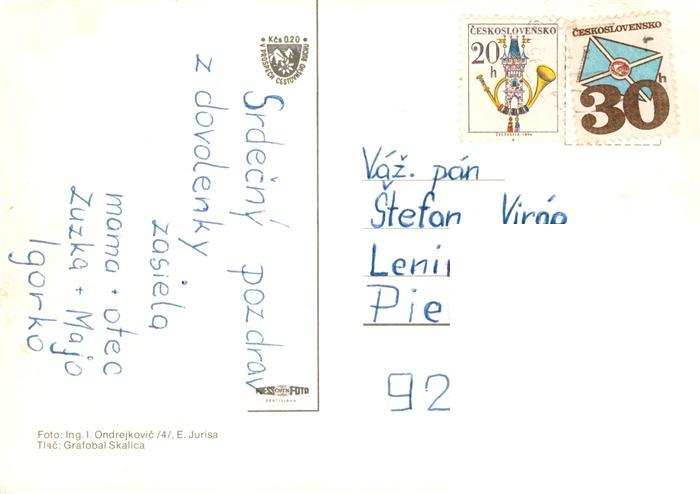 Kčs 0.20
V PROSPECH CESTOVNÉHO RUCHU
Srdečný pozdrav
z dovolenky
zasiela
mama + otec
Zuzka + Majo
Igorko
PRESSFOTO
BRATISLAVA
Foto: Ing. I. Ondrejkovič /4/, E. Jurisa
Tlač: Grafobal Skalica
ČESKOSLOVENSKO
20
h
ČESKOSLOVENSKO
30
h
Váž. pán
Štefan
Leni
Pie
92